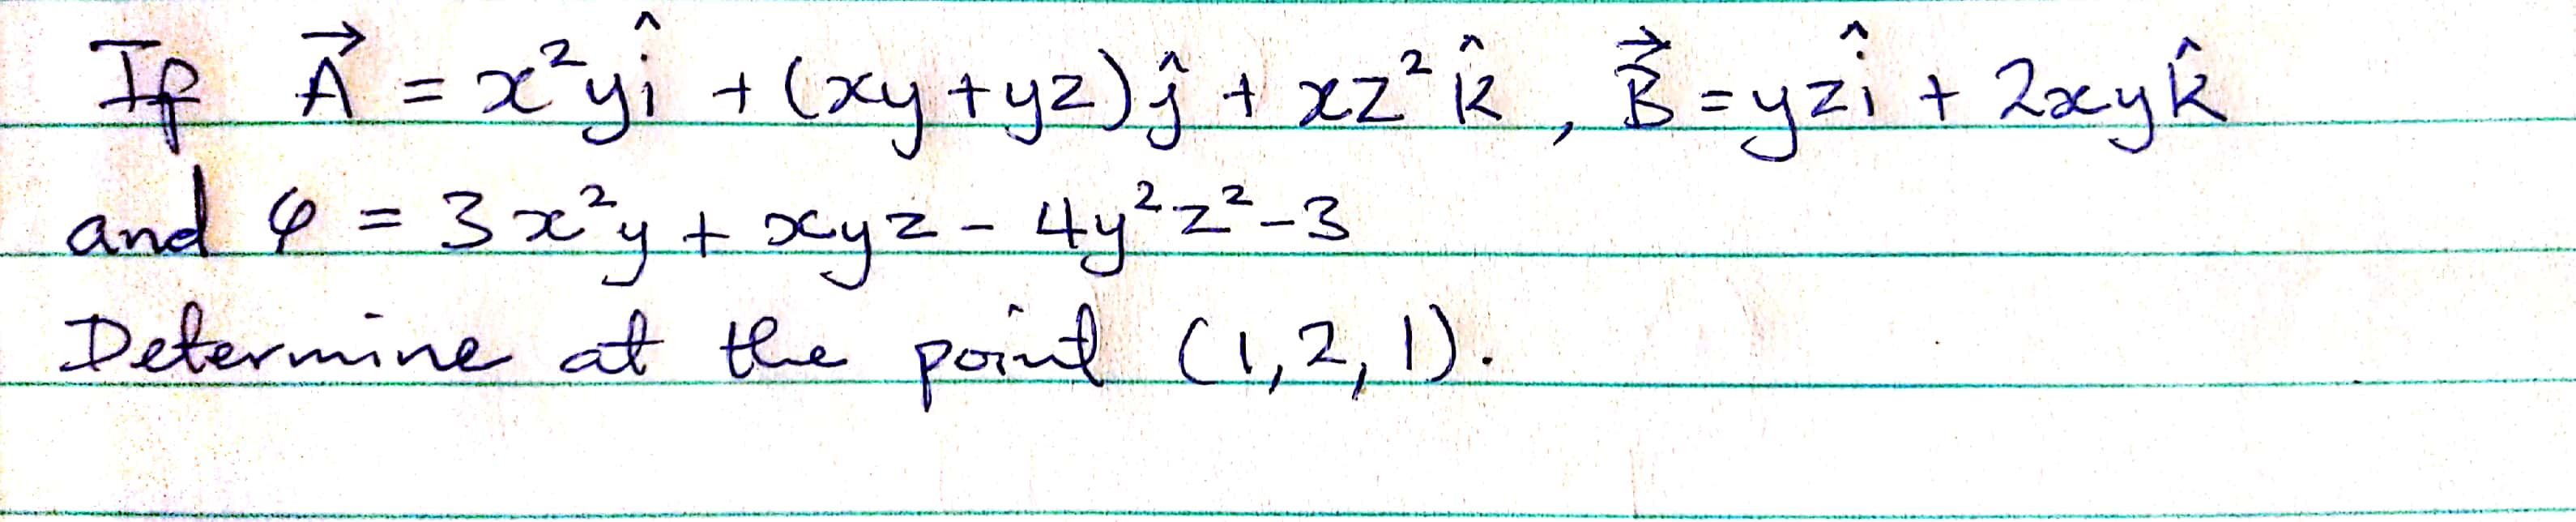 If A⃗ = x²yî + (xy + yz)ĵ + xz²k̂, B⃗ = yzî + 2xyk̂
and φ = 3x²y + xyz - 4y²z² - 3
Determine at the point (1, 2, 1).